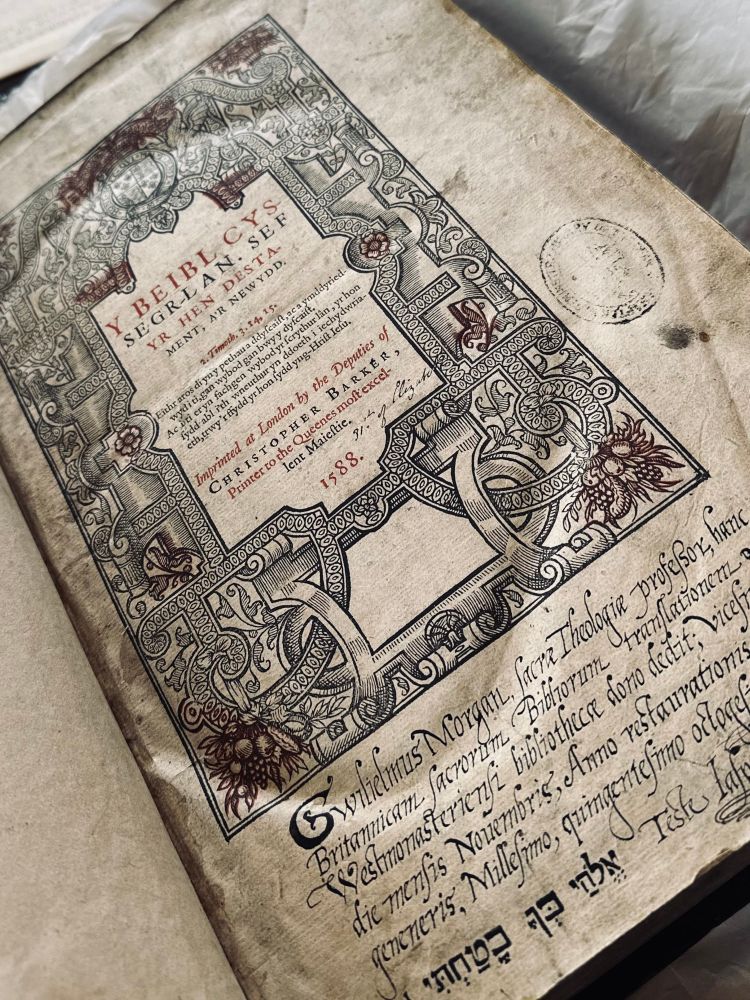 Y BEIBL CYS
SEGR-LAN. SEF
YR HEN DESTA-
MENT, A'R NEWYDD.
2. Timoth. 3. 14, 15.
Eithr aros di yn y pethau a ddyscaist, ac a ymddyried-
wyd i ti, gan wybod gan bwy y dyscaist.
Ac i ti er yn fachgen wybod yr scrythur lân, yr hon
sydd abl i'th wneuthur yn ddoeth i iechydwria-
eth, trwy'r ffydd yr hon sydd yng-Hrist Iesu.
Imprinted at London by the Deputies of
CHRISTOPHER BARKER,
Printer to the Queenes most excel-
lent Maiestie.
1588.
31st of Elizab
Gwilielmus Morgan, sacræ Theologiæ professor, hanc
Britannicam sacrorum Bibliorum translationem
Westmonasteriensi bibliothecæ dono dedit; vicesi
die mensis Nouembris, Anno restaurationis
generis, Millesimo, quingentesimo octoges
Teste
אֱלֹהַי בְּךָ בָטַחְתִּי